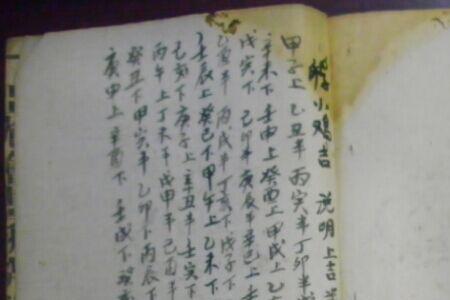 解小鸡吉 说明上吉半
甲子上 乙丑半 丙寅半 丁卯半
辛未下 壬申上 癸酉上 甲戌上 乙
戊寅下 己卯半 庚辰半 辛巳上
乙酉半 丙戌半 丁亥下 戊子下
壬辰上 癸巳下 甲午上 乙未下
己亥下 庚子上 辛丑半 壬寅下
丙午上 丁未半 戊申半 己酉半
癸丑下 甲寅半 乙卯下 丙辰下
庚申上 辛酉下 壬戌下 癸亥